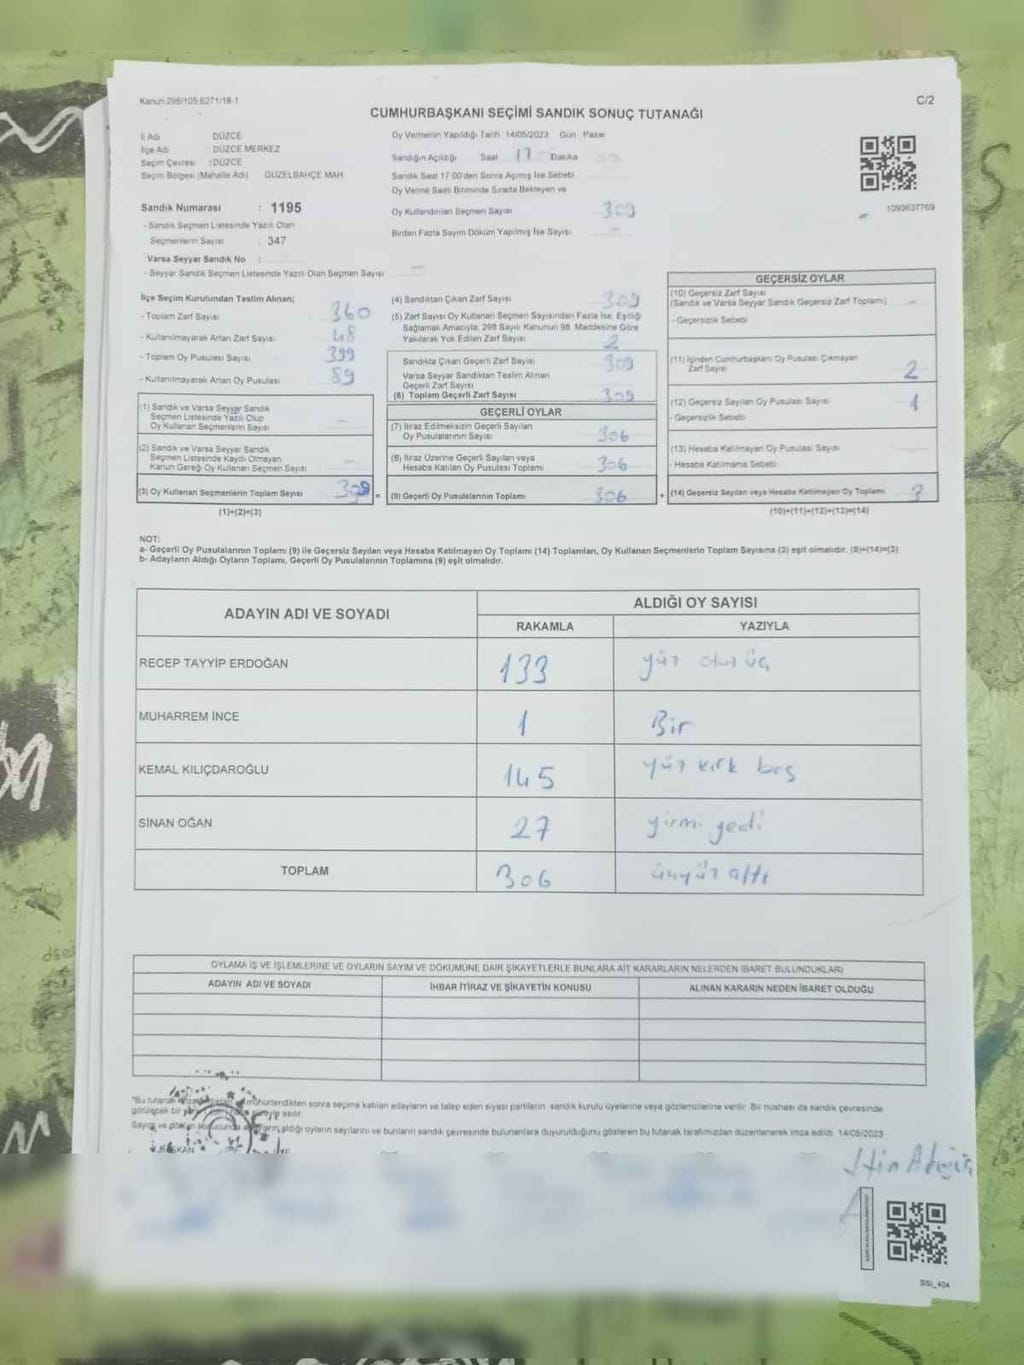 Kanun:298/105;6271/18-1
C/2
CUMHURBAŞKANI SEÇİMİ SANDIK SONUÇ TUTANAĞI
İl Adı DÜZCE
İlçe Adı DÜZCE MERKEZ
Seçim Çevresi :DÜZCE
Seçim Bölgesi (Mahalle Adı) GÜZELBAHÇE MAH.
Sandık Numarası : 1195
- Sandık Seçmen Listesinde Yazılı Olan
Seçmenlerin Sayısı : 347
Varsa Seyyar Sandık No :
- Seyyar Sandık Seçmen Listesinde Yazılı Olan Seçmen Sayısı
Oy Vermenin Yapıldığı Tarih :14/05/2023 Gün : Pazar
Sandığın Açıldığı Saat 17 Dakika
Sandık Saat 17.00'den Sonra Açılmış İse Sebebi
Oy Verme Saati Bitiminde Sırada Bekleyen ve
Oy Kullandırılan Seçmen Sayısı 309
Birden Fazla Sayım Döküm Yapılmış İse Sayısı
1093637769
İlçe Seçim Kurulundan Teslim Alınan;
- Toplam Zarf Sayısı 360
- Kullanılmayarak Artan Zarf Sayısı 48
- Toplam Oy Pusulası Sayısı 399
- Kullanılmayarak Artan Oy Pusulası 89
(1) Sandık ve Varsa Seyyar Sandık
Seçmen Listesinde Yazılı Olup
Oy Kullanan Seçmenlerin Sayısı
(2) Sandık ve Varsa Seyyar Sandık
Seçmen Listesinde Kaydı Olmayan
Kanun Gereği Oy Kullanan Seçmen Sayısı
(3) Oy Kullanan Seçmenlerin Toplam Sayısı 309 =
(1)+(2)=(3)
(4) Sandıktan Çıkan Zarf Sayısı 309
(5) Zarf Sayısı Oy Kullanan Seçmen Sayısından Fazla İse, Eşitliği
Sağlamak Amacıyla, 298 Sayılı Kanunun 98. Maddesine Göre
Yakılarak Yok Edilen Zarf Sayısı 2
Sandıkta Çıkan Geçerli Zarf Sayısı 309
Varsa Seyyar Sandıktan Teslim Alınan
Geçerli Zarf Sayısı
(6) Toplam Geçerli Zarf Sayısı 309
GEÇERLİ OYLAR
(7) İtiraz Edilmeksizin Geçerli Sayılan
Oy Pusulalarının Sayısı 306
(8) İtiraz Üzerine Geçerli Sayılan veya
Hesaba Katılan Oy Pusulası Toplamı 306
(9) Geçerli Oy Pusulalarının Toplamı 306 +
GEÇERSİZ OYLAR
(10) Geçersiz Zarf Sayısı
(Sandık ve Varsa Seyyar Sandık Geçersiz Zarf Toplamı)
- Geçersizlik Sebebi
(11) İçinden Cumhurbaşkanı Oy Pusulası Çıkmayan
Zarf Sayısı 2
(12) Geçersiz Sayılan Oy Pusulası Sayısı 1
- Geçersizlik Sebebi
(13) Hesaba Katılmayan Oy Pusulası Sayısı
- Hesaba Katılmama Sebebi
(14) Geçersiz Sayılan veya Hesaba Katılmayan Oy Toplamı 3
(10)+(11)+(12)+(13)=(14)
NOT:
a- Geçerli Oy Pusulalarının Toplamı (9) ile Geçersiz Sayılan veya Hesaba Katılmayan Oy Toplamı (14) Toplamları, Oy Kullanan Seçmenlerin Toplam Sayısına (3) eşit olmalıdır. (9)+(14)=(3)
b- Adayların Aldığı Oyların Toplamı, Geçerli Oy Pusulalarının Toplamına (9) eşit olmalıdır.
ADAYIN ADI VE SOYADI
ALDIĞI OY SAYISI
RAKAMLA YAZIYLA
RECEP TAYYİP ERDOĞAN 133 yüz otuz üç
MUHARREM İNCE 1 Bir
KEMAL KILIÇDAROĞLU 145 yüz kırk beş
SİNAN OĞAN 27 yirmi yedi
TOPLAM 306 üçyüz altı
OYLAMA İŞ VE İŞLEMLERİNE VE OYLARIN SAYIM VE DÖKÜMÜNE DAİR ŞİKAYETLERLE BUNLARA AİT KARARLARIN NELERDEN İBARET BULUNDUKLARI
ADAYIN ADI VE SOYADI İHBAR İTİRAZ VE ŞİKAYETİN KONUSU ALINAN KARARIN NEDEN İBARET OLDUĞU
*Bu tutanak mühürlendikten sonra seçime katılan adayların ve talep eden siyasi partilerin sandık kurulu üyelerine veya gözlemcilerine verilir. Bir nüshası da sandık çevresinde
görülecek bir yere
Sayım ve döküm sonucunda adayların aldığı oyların sayılarını ve bunların sandık çevresinde bulunanlara duyurulduğunu gösteren bu tutanak tarafımızdan düzenlenerek imza edildi. 14/05/2023
BAŞKAN
SSI_404